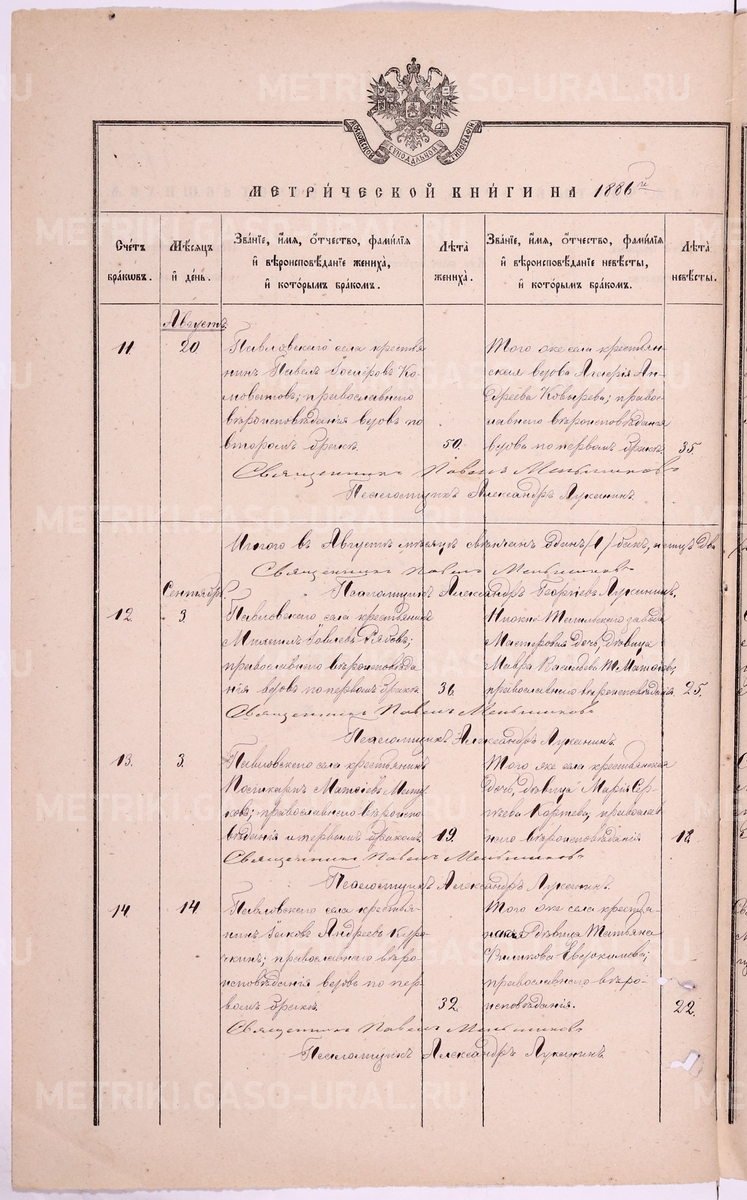 METRIKI.GASO-URAL.RU
МОСКОВСКОЙ СѴНОДАЛЬНОЙ ТИПОГРАФІИ
МЕТРИ́ЧЕСКОЙ КНИ́ГИ НА 1886 г.
Сче́тъ бра́кωвъ.
Мѣ́сяцъ и҆ де́нь.
Зва́нїе, и҆́мя, ѻ҆́тчество, фами́лїя
и҆ вѣроисповѣ́данїе жениха̀,
и҆ кото́рымъ бра́комъ.
Лѣ́та жениха̀.
Зва́нїе, и҆́мя, ѻ҆́тчество, фами́лїя
и҆ вѣроисповѣ́данїе невѣ́сты,
и҆ кото́рымъ бра́комъ.
Лѣ́та невѣ́сты.
Августъ
11. 20
Павловскаго села крестья-
нинъ Павелъ
православнаго
вѣроисповѣданія вдовъ по
второмъ бракѣ
50.
Того же села крестьян-
ская вдова Ан-
дреева право-
славнаго вѣроисповѣданія
вдова по первомъ бракѣ
35.
Священникъ Павелъ Меньшиковъ
Псаломщикъ Александръ Луканинъ.
Итого въ Августѣ мѣсяцѣ вѣнчанъ одинъ /1/ бракъ, лицъ два
Священникъ Павелъ Меньшиковъ
Псаломщикъ Александръ Георгіевъ Лукининъ.
Сентябрь.
12. 3
Павловскаго села крестьянинъ
православнаго вѣроисповѣда-
нія вдовъ по первомъ бракѣ
36
Нижне Тагильскаго завода
Мастероваго дочь, дѣвица
Мавра Васильева
православнаго вѣроисповѣданія
25.
Священникъ Павелъ Меньшиковъ
Псаломщикъ Александръ Лукининъ.
13. 3.
Павловскаго села крестьянинъ
православнаго вѣроиспо-
вѣданія первымъ бракомъ
19.
Того же села крестьянская
дочь, дѣвица Марія Сер-
гѣева православ-
наго вѣроисповѣданія
18.
Священникъ Павелъ Меньшиковъ
Псаломщикъ Александръ Лукининъ.
14 14
Павловскаго села крестья-
нинъ Іаковъ Андреевъ Кура-
кинъ; православнаго вѣро-
исповѣданія вдовъ по пер-
вомъ бракѣ
32.
Того же села крестья-
нская дѣвица Татьяна
Филипова Евдокимова;
православнаго вѣро-
исповѣданія.
22.
Священникъ Павелъ Меньшиковъ
Псаломщикъ Александръ Лукининъ